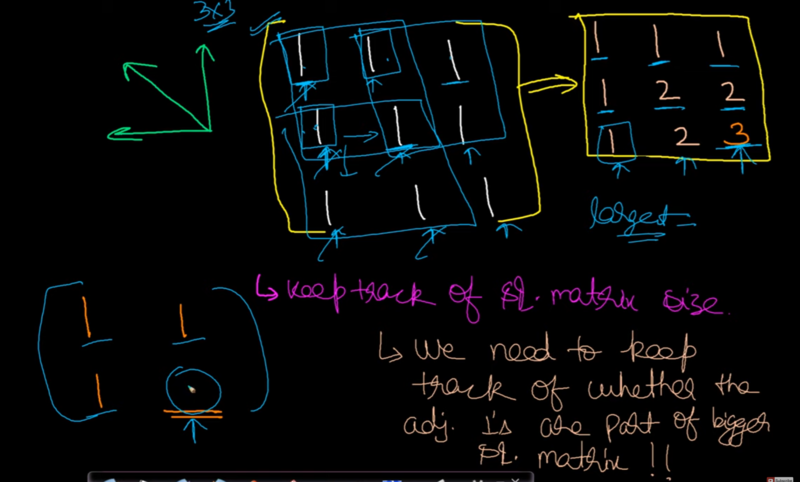 3x3
1 1 1
1 1 1
1 1 1
1 1 1
1 2 2
1 2 3
largest
1 1
1
↳ Keep track of sq. matrix size.
↳ We need to keep
track of whether the
adj. 1's are part of bigger
sq. matrix !!